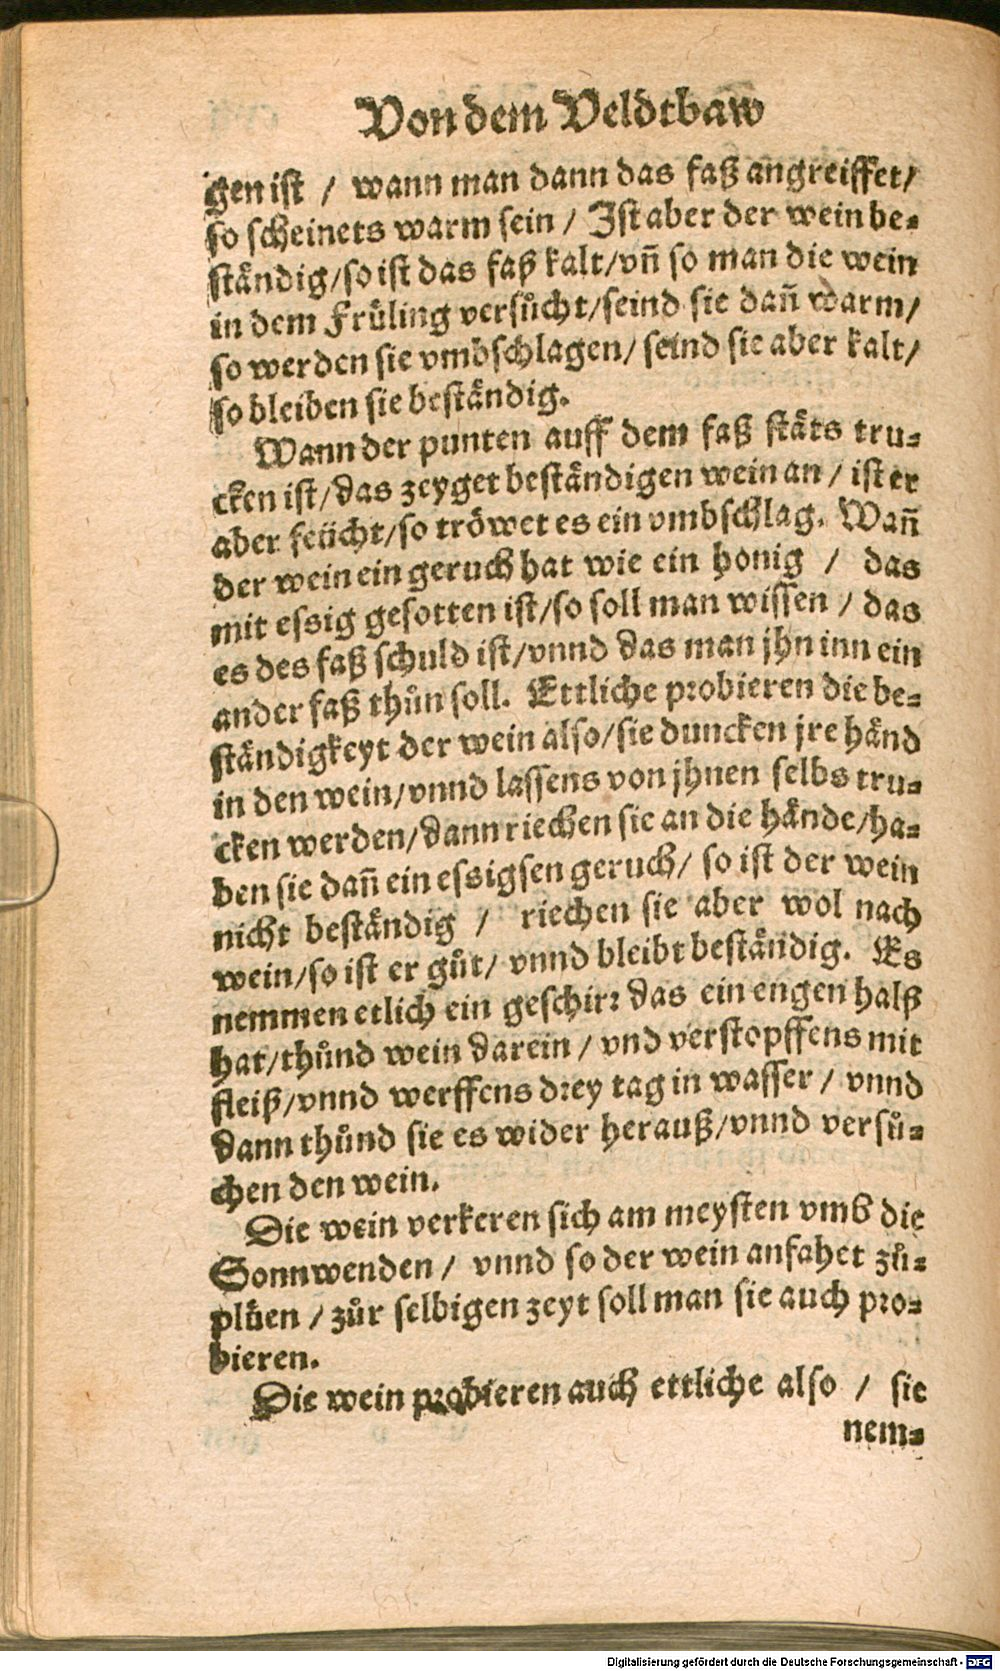 Von dem Veldtbaw
gen ist / wann man dann das faß angreiffet/
so scheinets warm sein / Ist aber der wein be-
ständig/so ist das faß kalt/vñ so man die wein
in dem Früling versůcht/seind sie dañ warm/
so werden sie vmbschlagen/ seind sie aber kalt/
so bleiben sie beständig.
Wann der punten auff dem faß stäts tru-
cken ist/das zeyget beständigen wein an / ist er
aber feücht/so tröwet es ein vmbschlag. Wañ
der wein ein geruch hat wie ein honig / das
mit essig gesotten ist/so soll man wissen / das
es des faß schuld ist/vnnd das man jhn inn ein
ander faß thůn soll. Ettliche probieren die be-
ständigkeyt der wein also/sie duncken jre händ
in den wein/vnnd lassens von jhnen selbs tru-
cken werden/dann riechen sie an die hände/ha-
ben sie dañ ein essigsen geruch/ so ist der wein
nicht beständig / riechen sie aber wol nach
wein/so ist er gůt/ vnnd bleibt beständig. Es
nemmen etlich ein geschirr das ein engen halß
hat/thůnd wein darein / vnd verstopffens mit
fleiß/vnnd werffens drey tag in wasser / vnnd
dann thůnd sie es wider herauß/vnnd versů-
chen den wein.
Die wein verkeren sich am meysten vmb die
Sonnwenden / vnnd so der wein anfahet zů-
plüen / zůr selbigen zeyt soll man sie auch pro-
bieren.
Die wein probieren auch ettliche also / sie
nem-
Digitalisierung gefördert durch die Deutsche Forschungsgemeinschaft - DFG